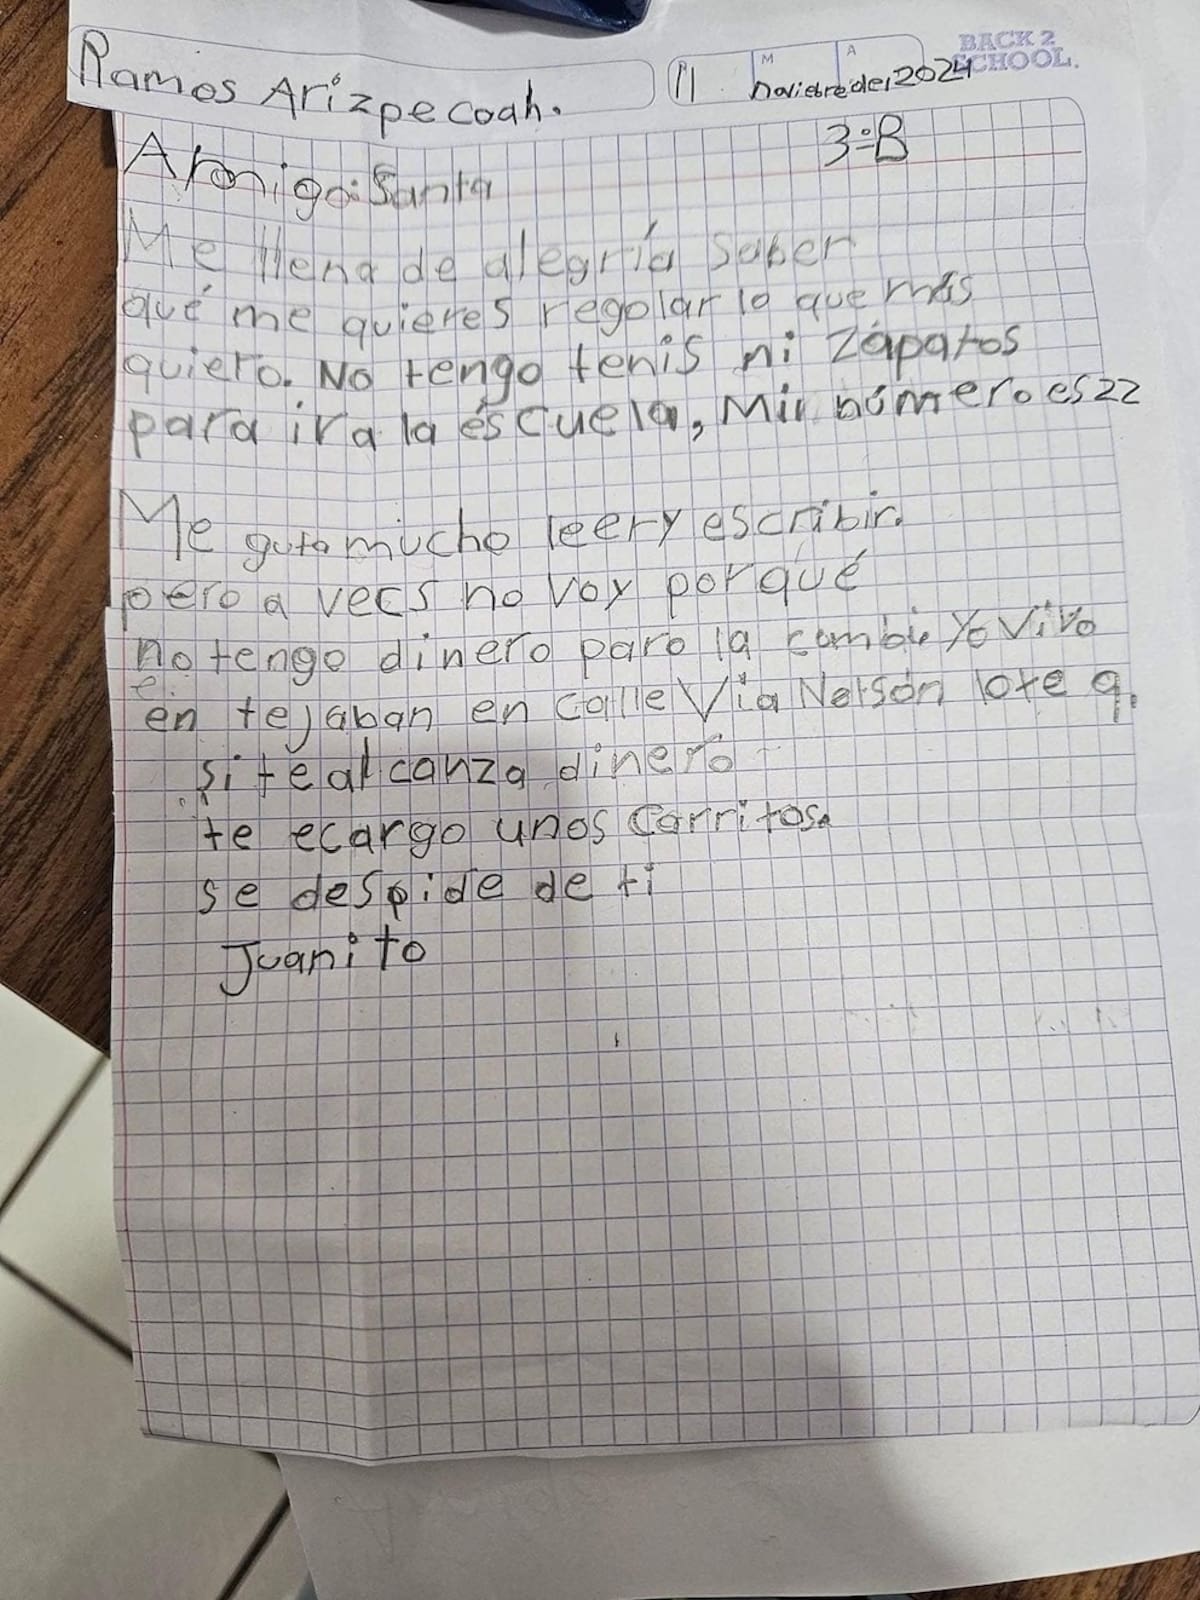 BACK 2
SCHOOL.
M A
Ramos Arizpe coah. 11 noviebre de, 2024
3=B
Amigo: Santa
Me llena de alegría saber
qué me quieres regolar lo que más
quiero. No tengo tenis ni zápatos
para ir a la éscuela, Mir número es 22
Me guta mucho leer y escribir.
pero a vecs no voy por qué
no tengo dinero paro la combi Yo vivo
en tejaban en calle Via Nelsón lote 9.
si te alcanza dineró
te ecargo unos carritos.
se despide de ti
Juanito